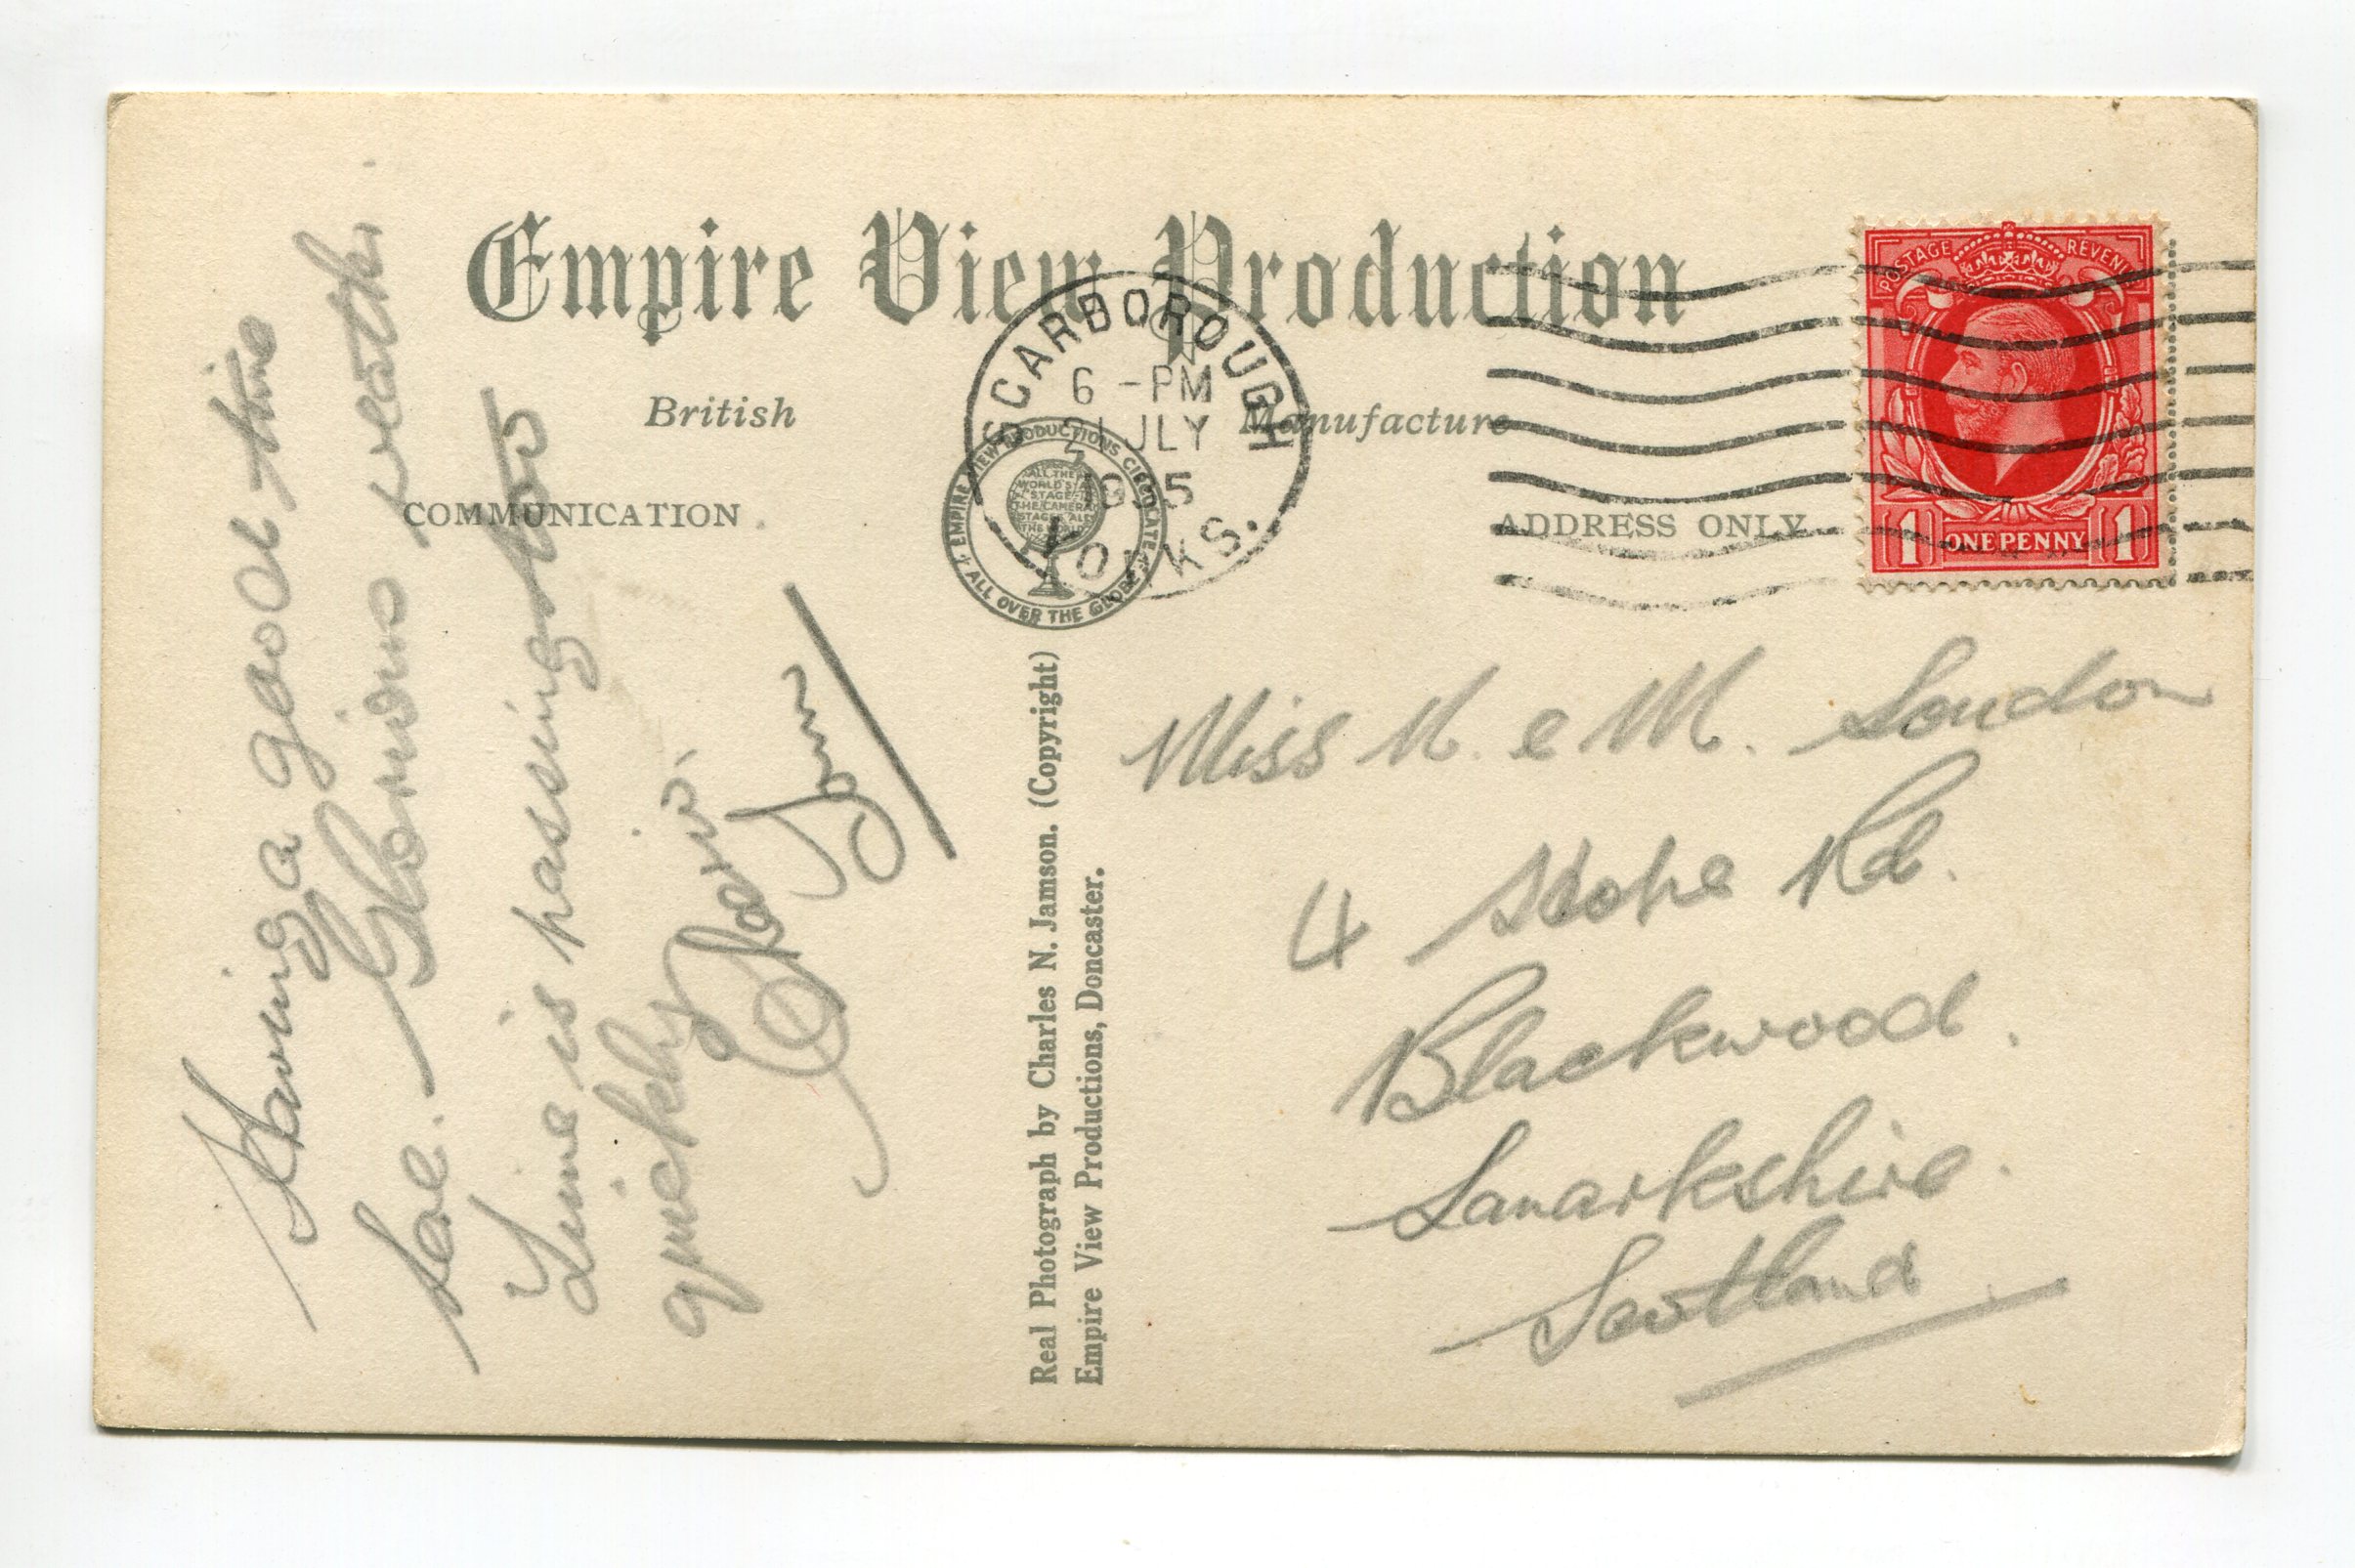 Empire View Production
British Manufacture
COMMUNICATION
ADDRESS ONLY
SCARBOROUGH
6 - PM
21 JLY
19 5
YORKS.
EMPIRE VIEW PRODUCTIONS CIRCULATE
ALL OVER THE GLOBE
ALL THE
WORLD'S A
STAGE
THE CAMERA
STAGES ALL
THE WORLD
POSTAGE REVENUE
1 ONE PENNY 1
Having a good time
Glorious weather
Time is passing too
quickly
Cheerio.
Tom
Real Photograph by Charles N. Jamson. (Copyright)
Empire View Productions, Doncaster.
Miss M. e M. London
4 Stope Rd.
Blackwood.
Lanarkshire.
Scotland